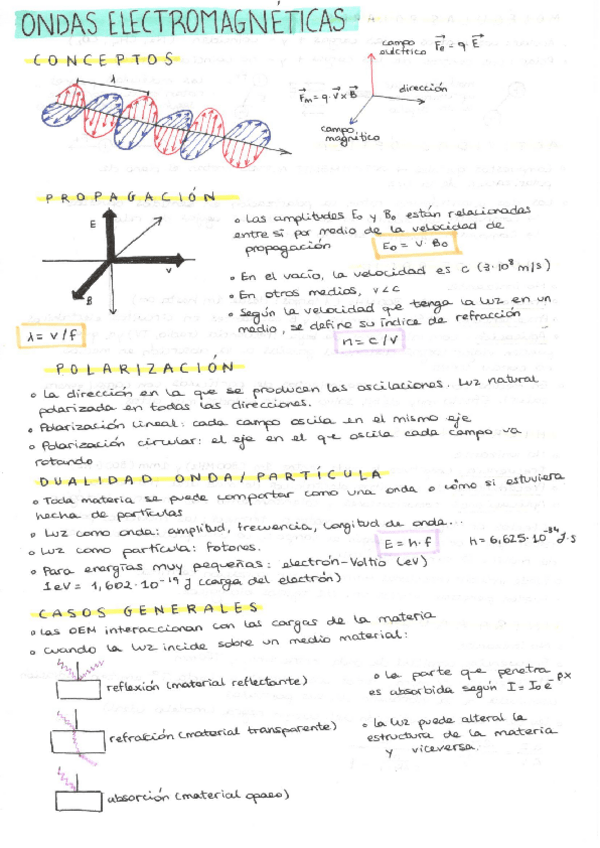 ONDAS ELECTROMAGNÉTICAS
CONCEPTOS
λ
campo
eléctrico F⃗e = q · E⃗
F⃗m = q · v⃗ × B⃗
dirección
campo
magnético
PROPAGACIÓN
E
v
B
λ = v/f
• Las amplitudes E₀ y B₀ están relacionadas
entre si por medio de la velocidad de
propagación
E₀ = v · B₀
• En el vacío, la velocidad es c (3·10⁸ m/s)
• En otros medios, v<c
• Según la velocidad que tenga la luz en un
medio, se define su índice de refracción
n = c/v
POLARIZACIÓN
• La dirección en la que se producen las oscilaciones. Luz natural
polarizada en todas las direcciones.
• Polarización lineal: cada campo oscila en el mismo eje
• Polarización circular: el eje en el q oscila cada campo va
rotando
DUALIDAD ONDA/PARTÍCULA
• Toda materia se puede comportar como una onda o cómo si estuviera
hecha de partículas
• Luz como onda: amplitud, frecuencia, longitud de onda...
• Luz como partícula: fotones.
E = h·f
h = 6,625·10⁻³⁴ J·s
• Para energías muy pequeñas: electrón-Voltio (eV)
1eV = 1,602·10⁻¹⁹ J (carga del electrón)
CASOS GENERALES
• Las OEM interaccionan con las cargas de la materia
• Cuando la luz incide sobre un medio material:
reflexión (material reflectante)
refracción (material transparente)
absorción (material opaco)
• La parte que penetra
es absorbida según I = I₀ e⁻ᵝˣ
• La luz puede alteral la
estructura de la materia
y viceversa.